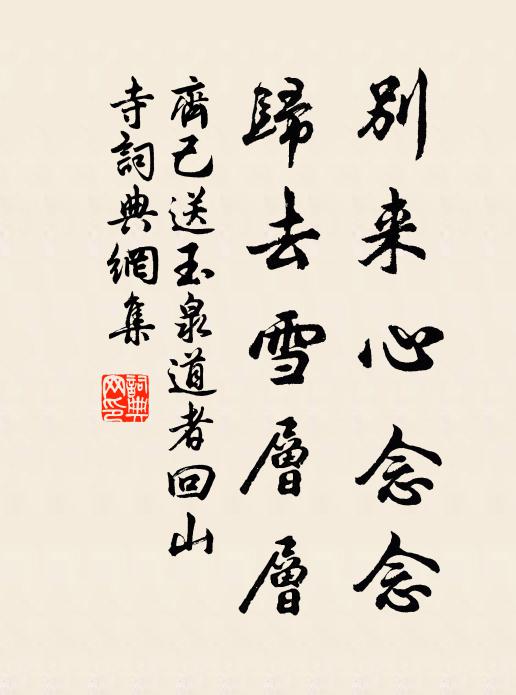 別来心念念
歸去雪層層
齊己送玉泉道者回山
寺詞典網集
詞典网印